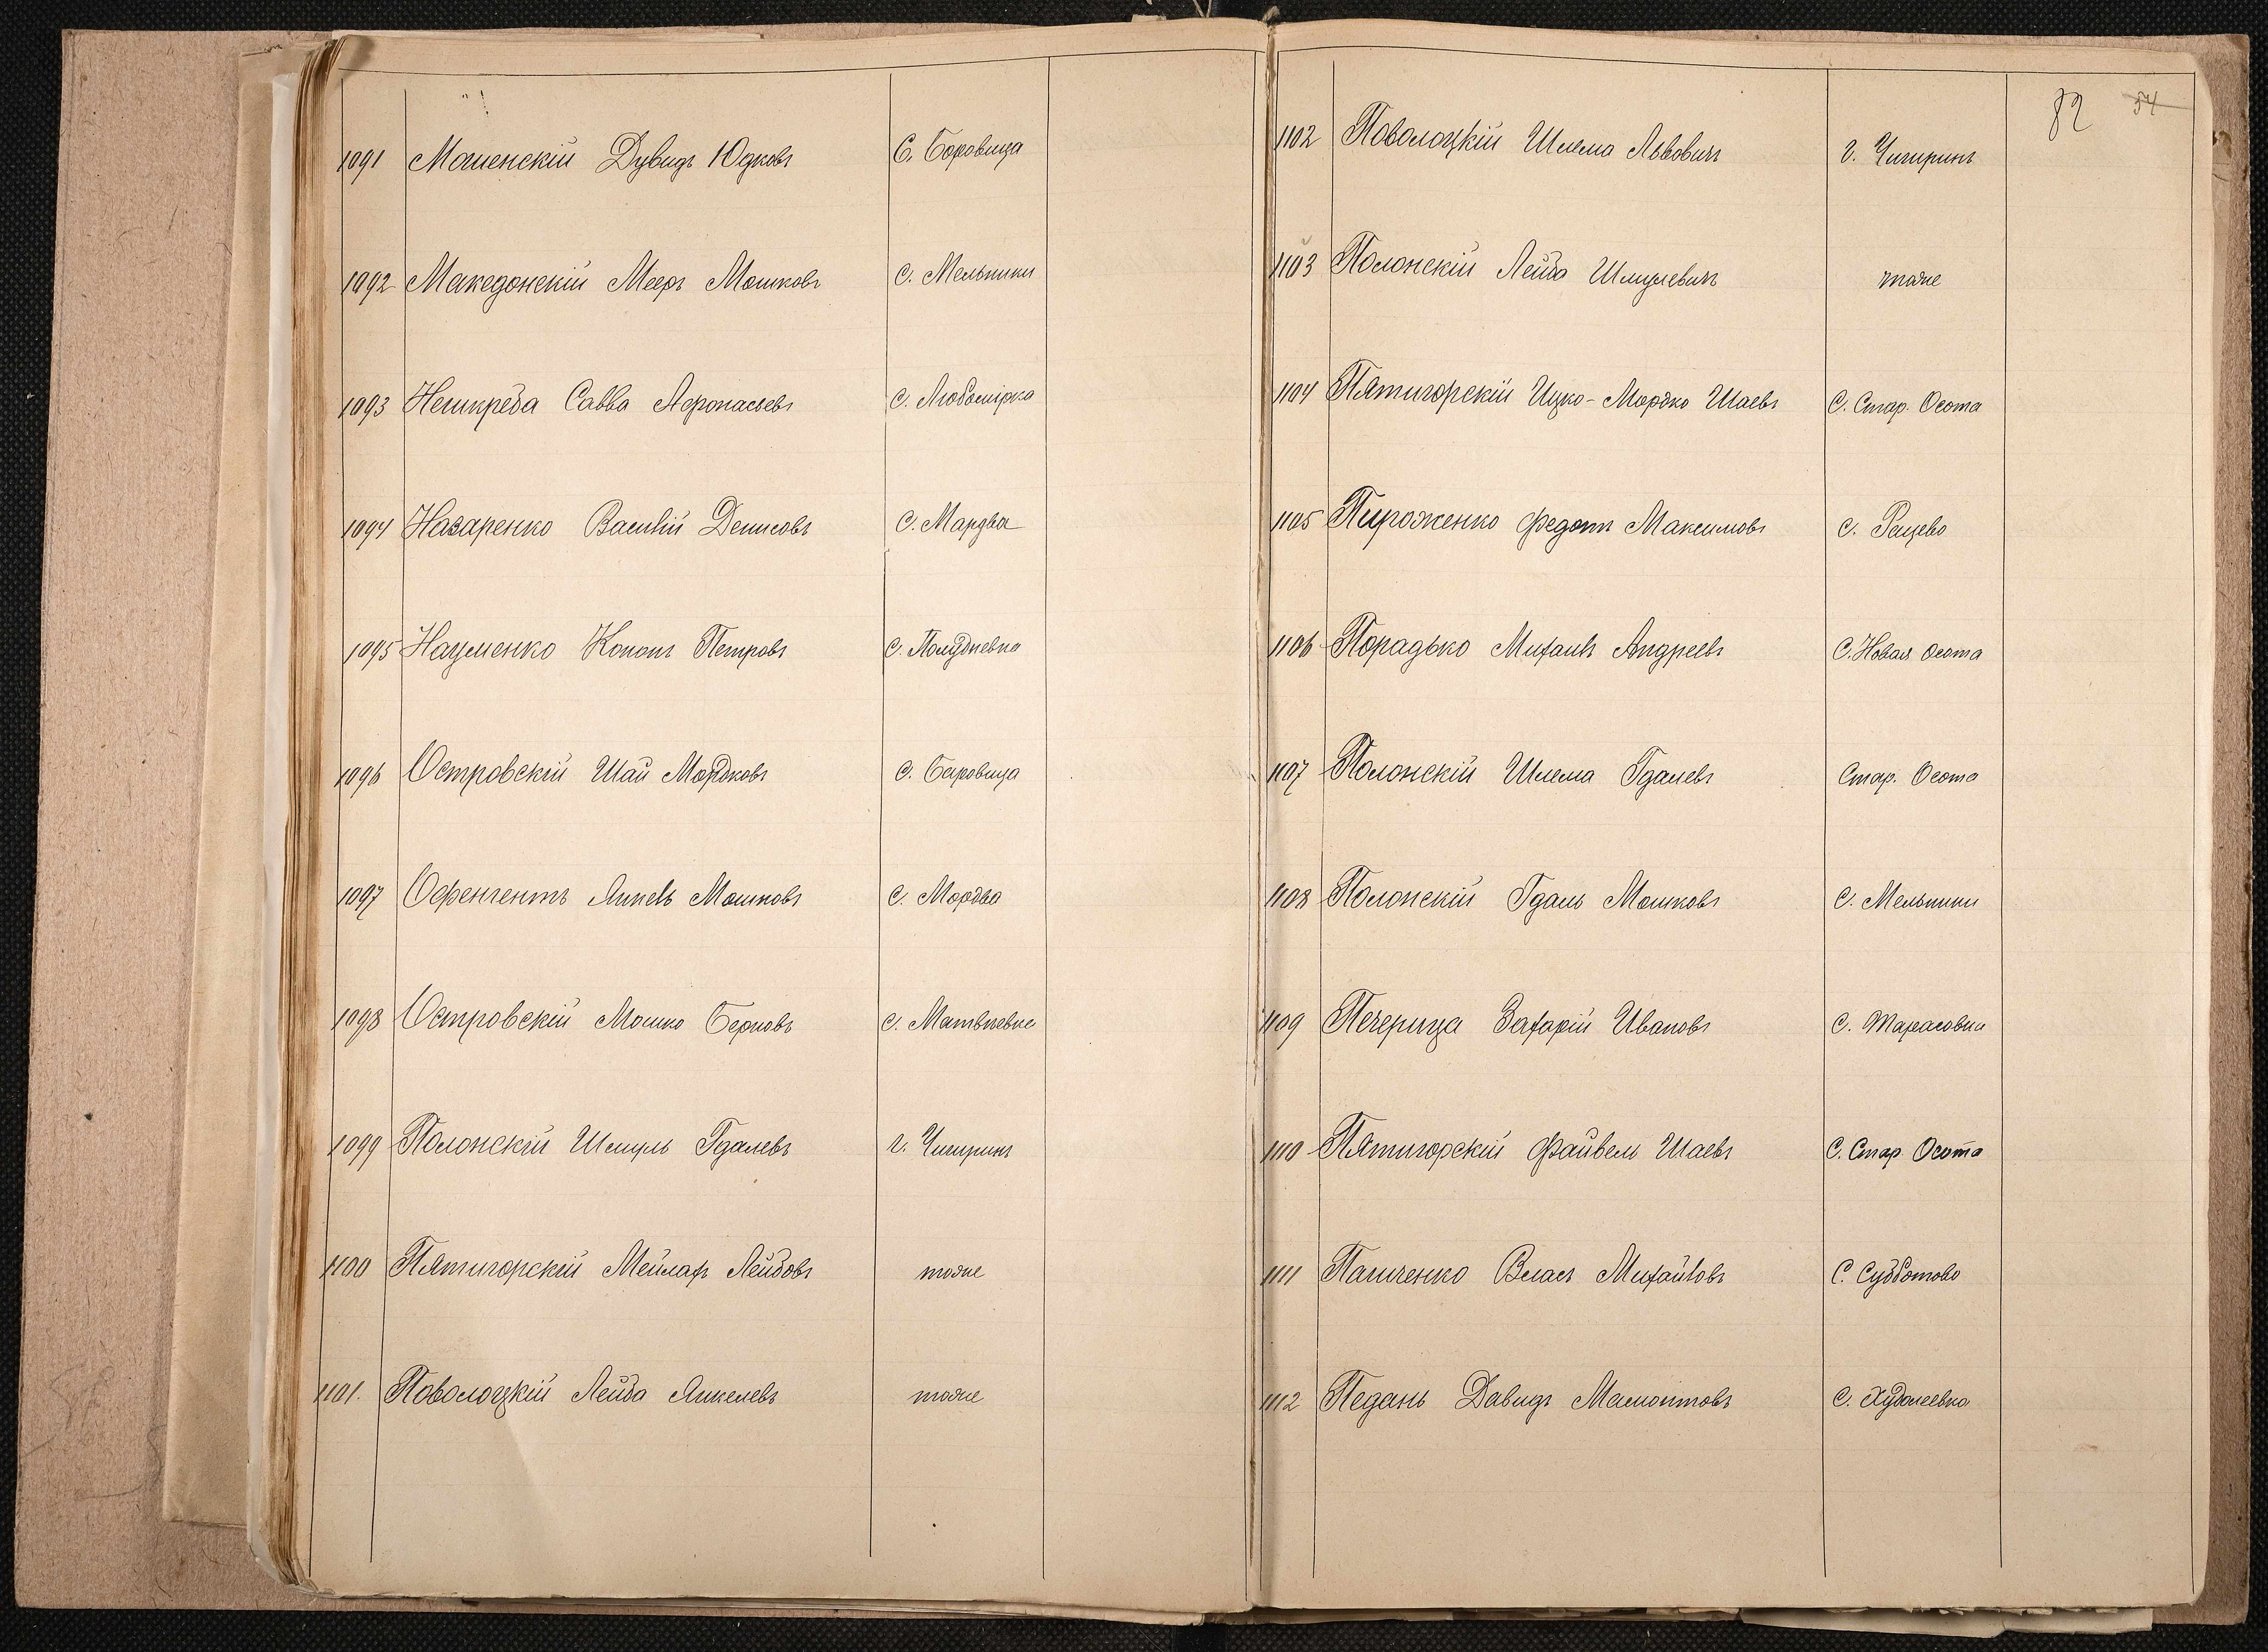 1091 Машенскій Дувидъ Юдковъ С. Боровица
1092 Македонскій Мееръ Мошковъ с. Мельники
1093 Нешкреба Савва Афонасьевъ с. Любомірка
1094 Назаренко Василій Денисовъ с. Мардва
1095 Науменко Кононъ Петровъ с. Полудневка
1096 Островскій Шай Мордковъ с. Боровица
1097 Офенгентъ Янкель Мошковъ с. Мордва
1098 Островскій Мошко Берковъ с. Матвѣевка
1099 Полонскій Шмуль Гдалевъ г. Чигиринъ
1100 Пятигорскій Мейлах Лейбовъ тоже
1101. Поволоцкій Лейба Янкелевъ тоже
82 54
1102 Поволоцкій Шлема Львовичъ г. Чигиринъ
1103 Полонскій Лейба Шмулевичъ тоже
1104 Пятигорскій Ицко-Мордко Шаевъ С. Стар. Осота
1105 Пироженко Федотъ Максимовъ с. Рацево
1106 Порадько Михаилъ Андреевъ С. Новая Осота
1107 Полонскій Шлема Гдалевъ Стар. Осота
1108 Полонскій Гдаль Мошковъ с. Мельники
1109 Печерица Захарій Ивановъ с. Тарасовки
1110 Пятигорскій Файвель Шаевъ С. Стар. Осота
1111 Пагиченко Власъ Михайловъ С. Субботово
1112 Педань Давидъ Мамонтовъ с. Худолеевка